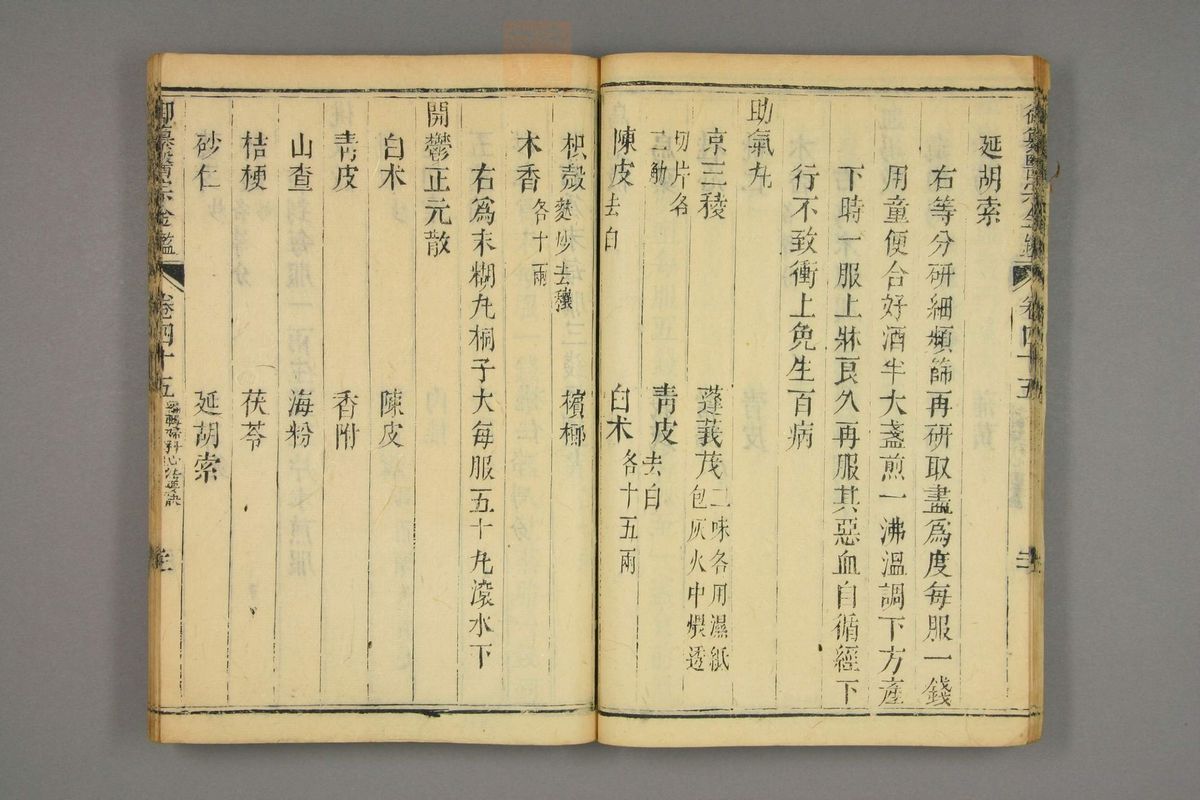 延胡索
右等分研細頻篩再研取盡爲度每服一錢
用童便合好酒半大盞煎一沸溫調下方產
下時一服上牀良久再服其惡血自循經下
行不致衝上免生百病
助氣丸
京三稜 蓬莪茂二味各用濕紙包灰火中煨透
切片各二觔 青皮去白
陳皮去白 白朮各十五兩
枳殼麩炒去穰 檳榔
木香各十兩
右爲末糊丸桐子大每服五十丸滾水下
開鬱正元散
白朮 陳皮
青皮 香附
山查 海粉
桔梗 茯苓
砂仁 延胡索
御纂醫宗金鑑 卷四十五